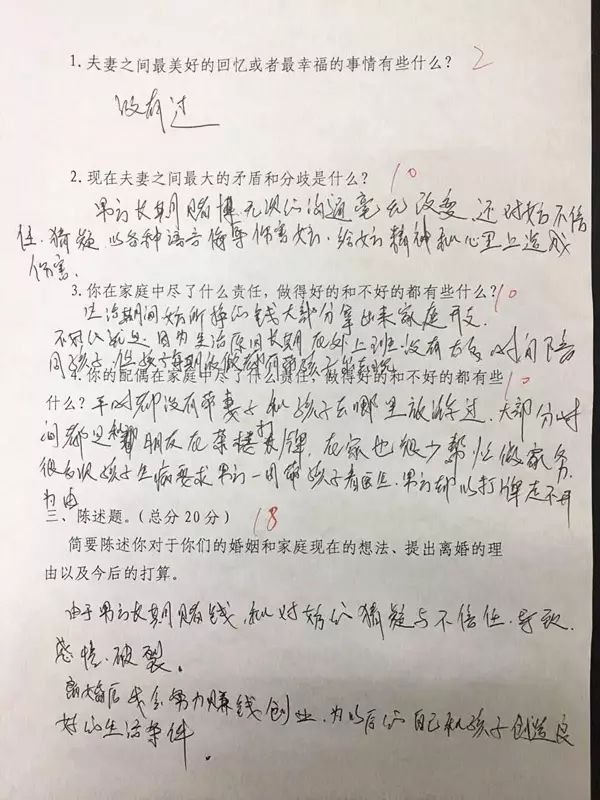 1.夫妻之间最美好的回忆或者最幸福的事情有些什么？ 2
没有过
2.现在夫妻之间最大的矛盾和分歧是什么？ 10
男方长期赌博，无次的沟通毫无改变，还对女方不信
任，猜疑，以各种语言侮辱伤害女方，给女方精神和心里上造成
伤害。
3.你在家庭中尽了什么责任，做得好的和不好的都有些什么？ 10
生活期间女方所挣的钱大部分拿出来家庭开支。
不好的就是因为生活原因长期在外上班没有太多时间陪
同孩子，但
4.你的配偶在家庭中尽了什么责任，做得好的和不好的都有些 10
什么？平时都没有带妻子和孩子去哪里放松过，大部分时
间都是和朋友在茶楼打牌，在家也很少帮忙做家务，
很多次孩子生病要求男方一同带孩子看医生，男方却以打牌走不开
为由
三、陈述题。（总分20分） 18
简要陈述你对于你们的婚姻和家庭现在的想法、提出离婚的理
由以及今后的打算。
由于男方长期赌钱，和对女方的猜疑与不信任，导致
感情破裂。
离婚后我会努力赚钱创业，为以后的自己和孩子创造良
好的生活条件。